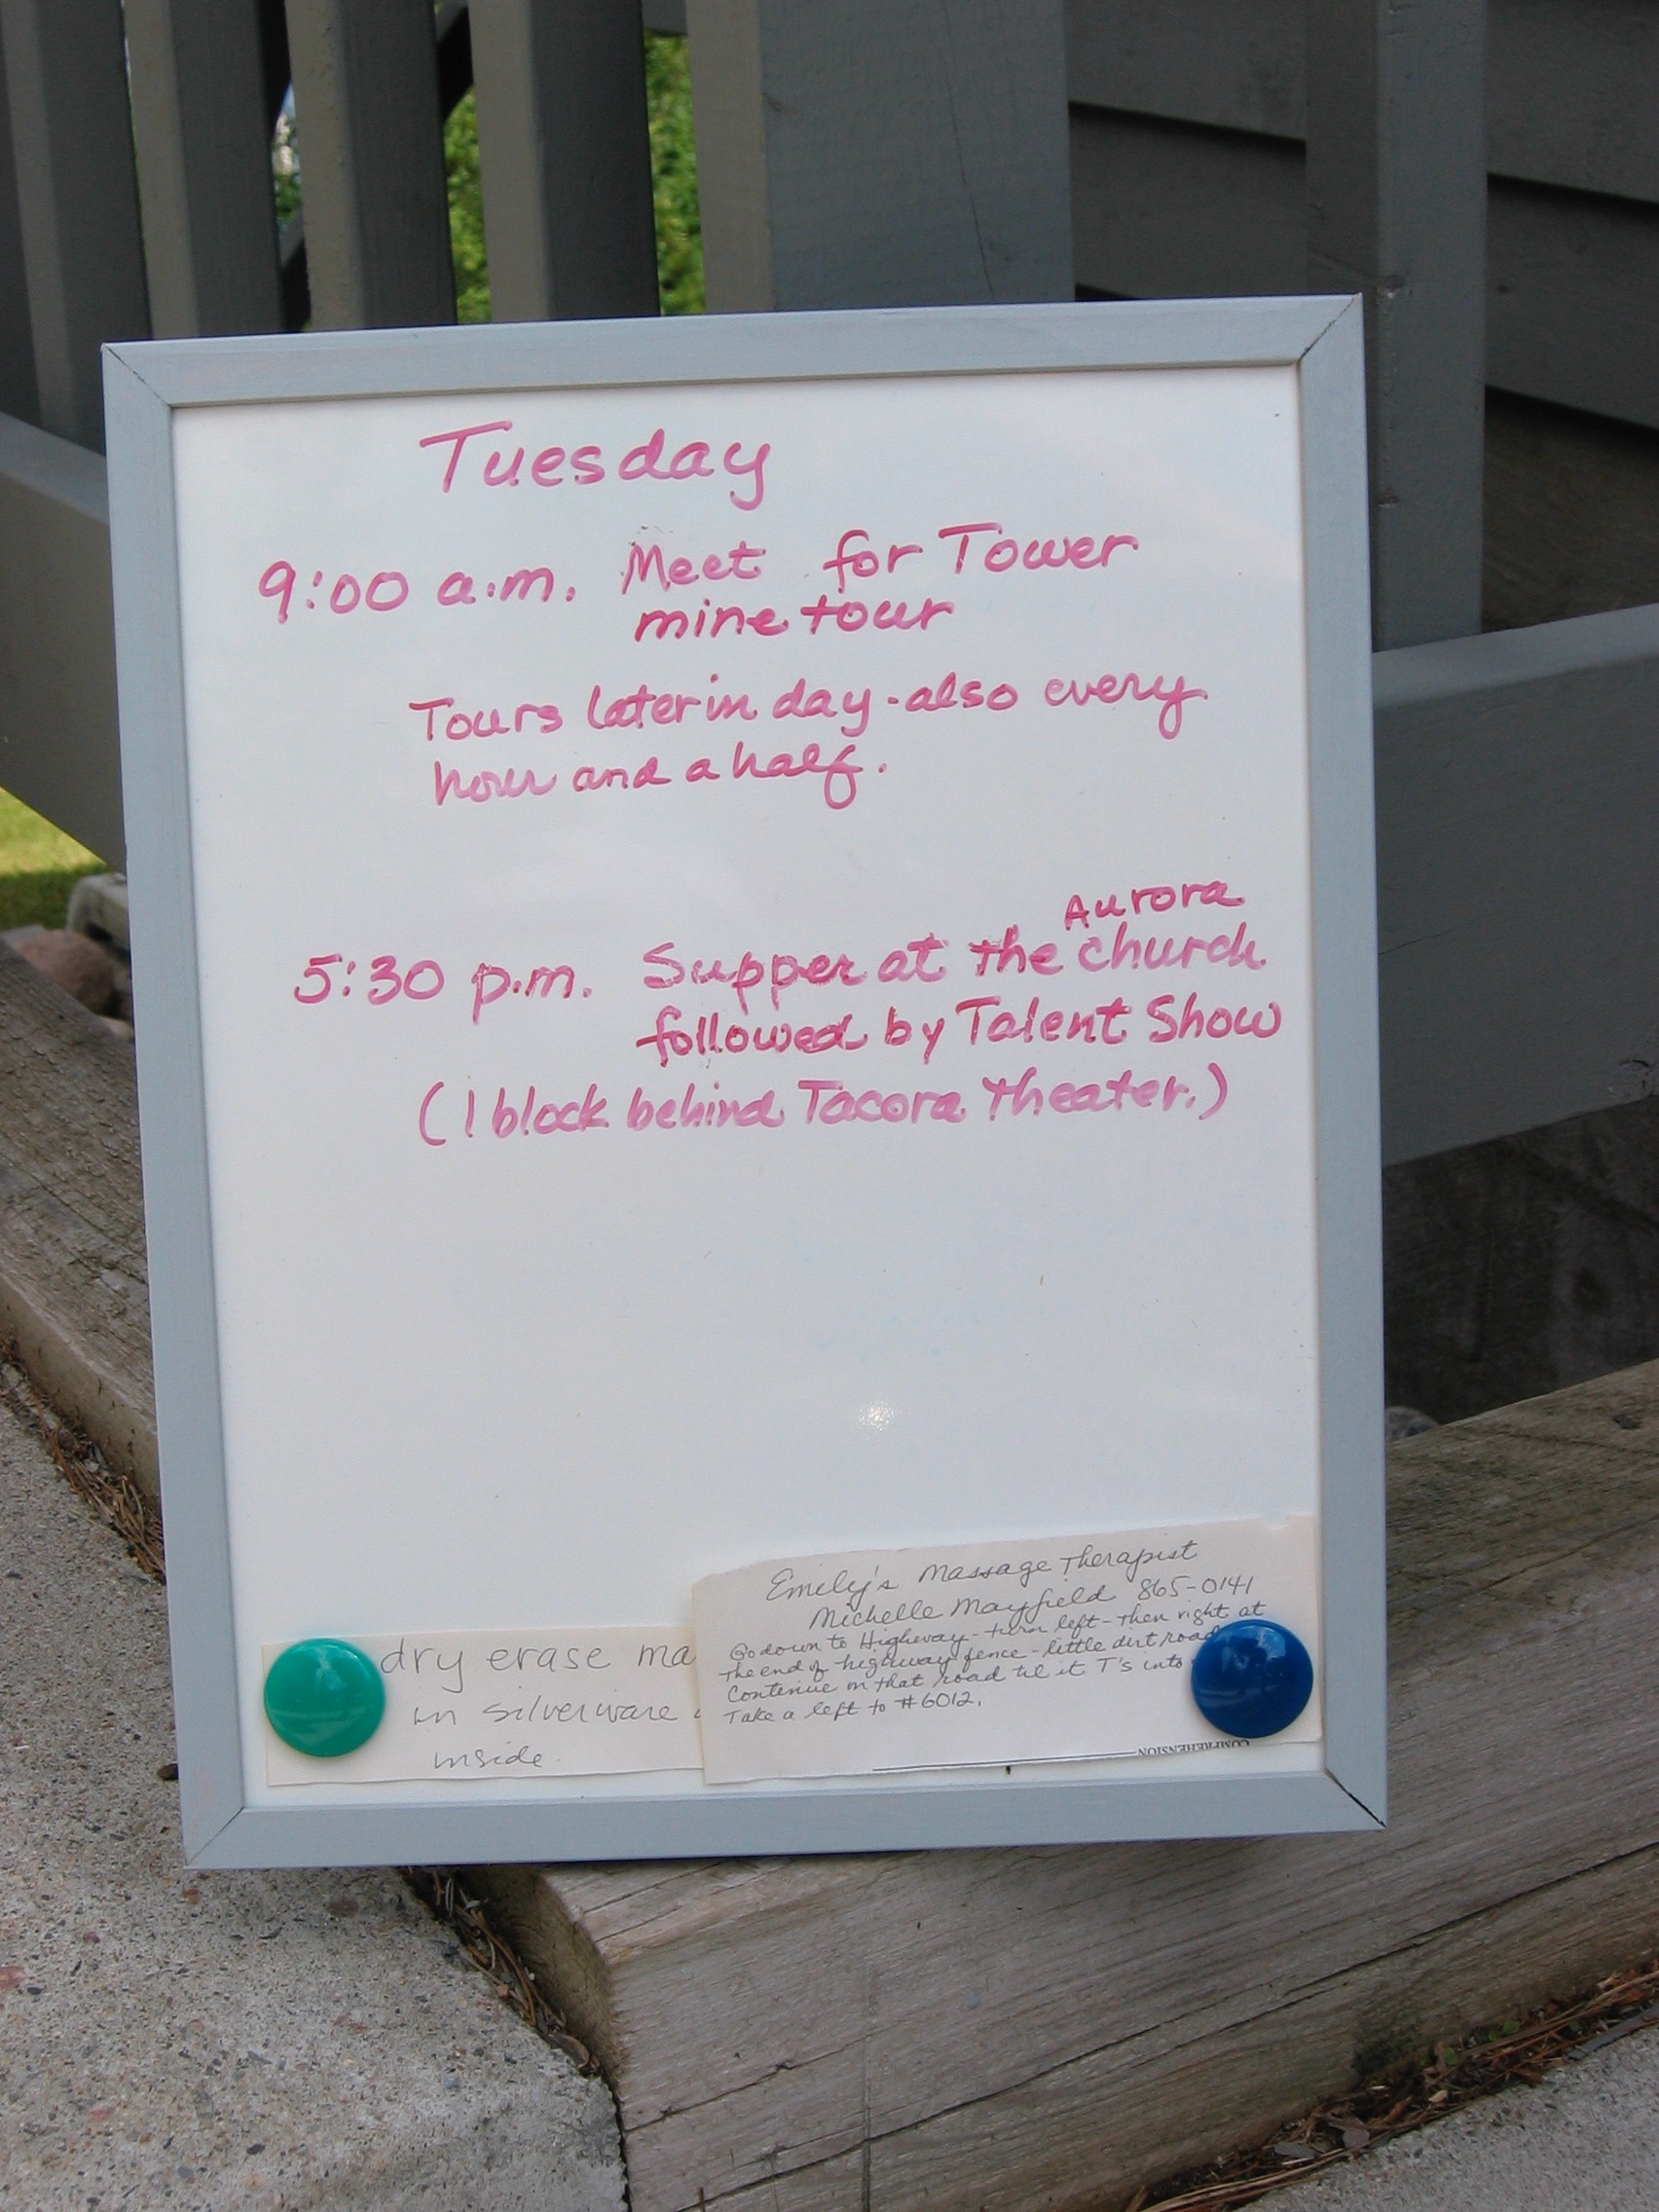 Tuesday
9:00 a.m. Meet for Tower
mine tour
Tours later in day - also every
hour and a half.
Aurora
5:30 p.m. Supper at the church
followed by Talent Show
(1 block behind Tacora theater.)
Emely's Massage Therapist
Michelle Mayfield 865-0141
Go down to Highway - turn left - then right at
the end of highway fence - little dirt road
Continue on that road til it T's into
Take a left to #6012.
COMPREHENSION
dry erase ma
in silverware
inside.